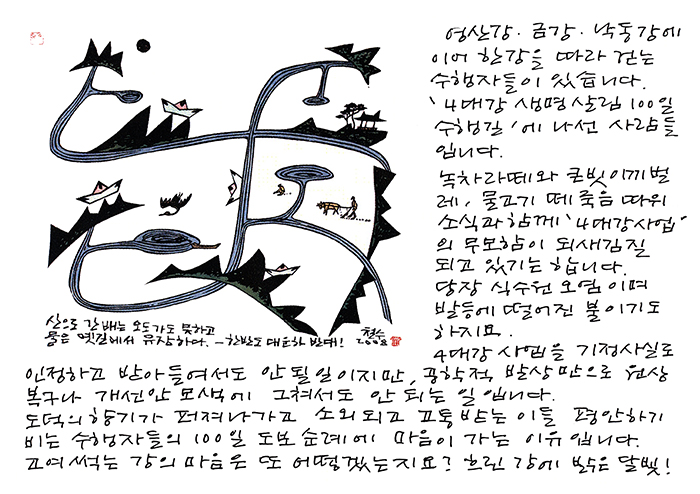 산으로 간 배는 오도가도 못하고
물은 옛길에서 유장하다. - 한반도 대운하 반대! 철수 2008
영산강·금강·낙동강에
이어 한강을 따라 걷는
수행자들이 있습니다.
'4대강 생명 살림 100일
수행길'에 나선 사람들
입니다.
녹차라떼와 큰빗이끼벌
레, 물고기 떼죽음 따위
소식과 함께 '4대강사업'
의 무모함이 되새김질
되고 있기는 합니다.
당장 식수원 오염이며
발등에 떨어진 불이기도
하지요.
4대강 사업을 기정사실로
인정하고 받아들여서도 안 될 일이지만, 공학적 발상만으로 원상
복구나 개선안 모색에 그쳐서도 안 되는 일입니다.
도덕의 향기가 퍼져나가고 소외되고 고통받는 이들 평안하기
비는 수행자들의 100일 도보순례에 마음이 가는 이유입니다.
고여 썩는 강의 마음은 또 어떻겠는지요? 흐린 강에 달빛!